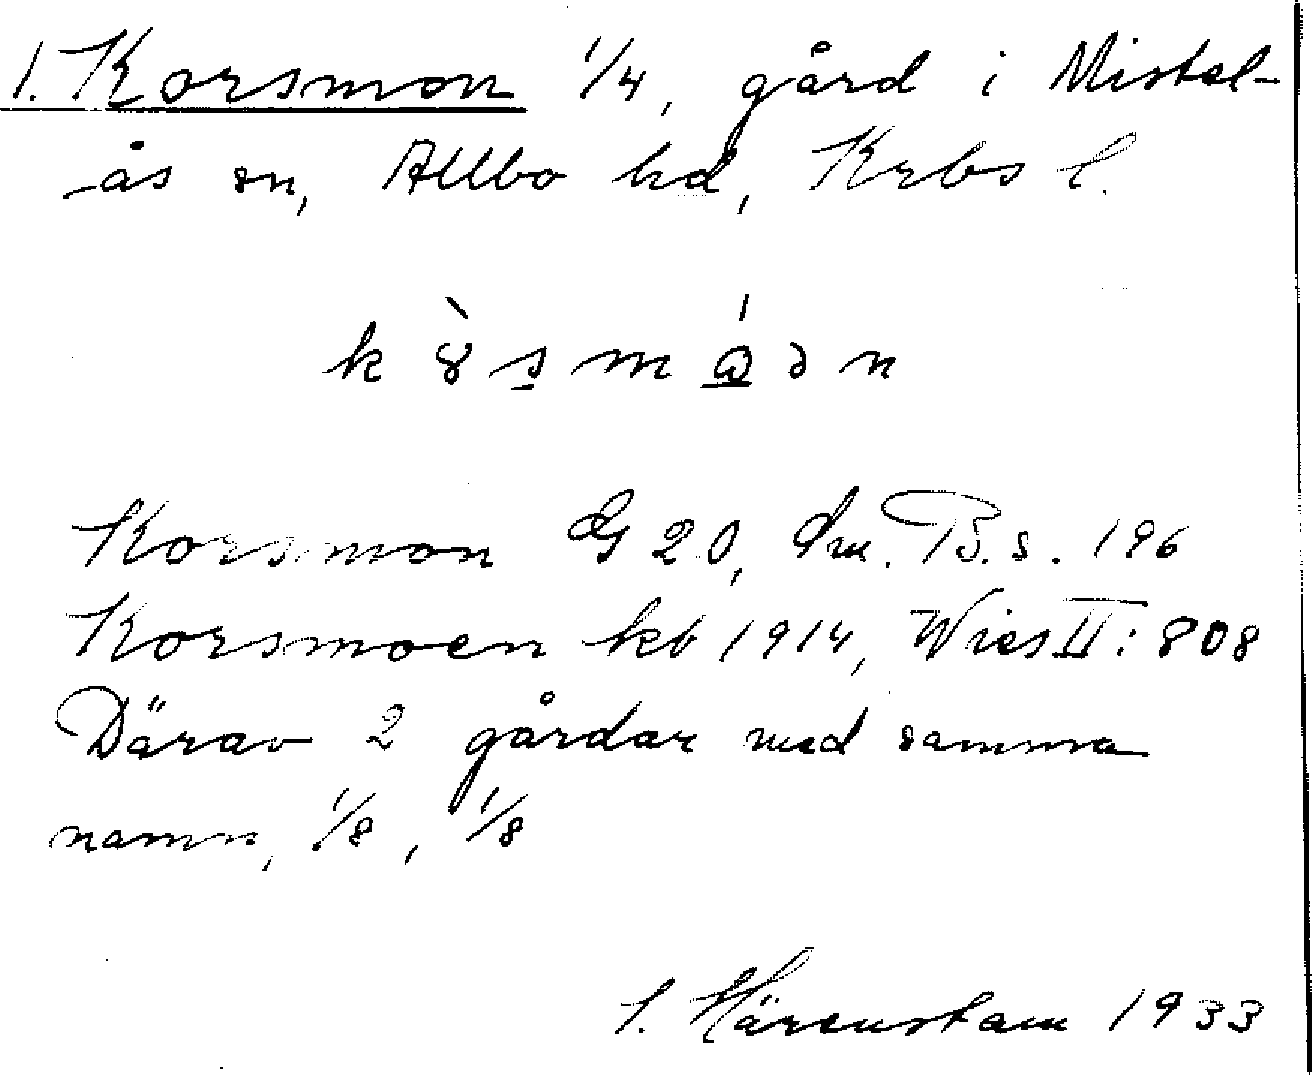 1. Korsmon 1/4, gård i Mistel-
ås sn, Allbo hd, Krbs l.
Korsmon G 20, Sm. B. s. 196
Korsmoen kb 1914, Wies II: 808
Därav 2 gårdar med samma
namn, 1/8, 1/8
Härenstam 1933